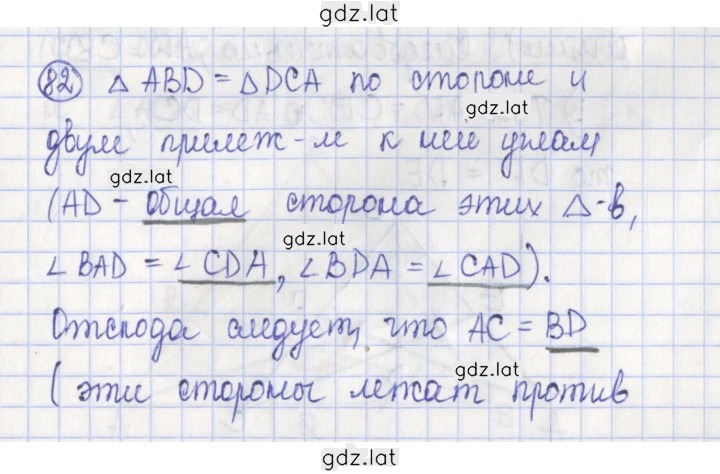 gdz.lat
82 △ ABD = △ DCA по стороне и
gdz.lat
двум прилеж-м к ней углам
gdz.lat
(AD - общая сторона этих △-в,
gdz.lat
∠ BAD = ∠ CDA, ∠ BDA = ∠ CAD).
Отсюда следует, что AC = BD
gdz.lat
(эти стороны лежат против
gdz.lat